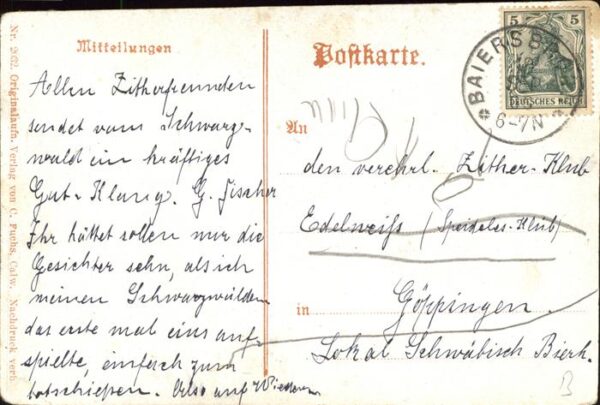 Nr. 2632 Originalaufn. Verlag von C. Fuchs, Calw. Nachdruck verb.
Mitteilungen
Allen Zitherfreunden
sendet vom Schwarz-
wald ein kräftiges
Gut-Klang. G. Fischer
Ihr hättet sollen nur die
Gesichter sehn, als ich
meinen Schwarzwäldern
das erste mal eins auf-
spielte, einfach zum
totschießen. Also auf Wiedersehn
Postkarte.
5 5
DEUTSCHES REICH
BAIERSBRONN
6-7N
An
den verehrl. Zither-Klub
Edelweiß (Speideles-Klub)
in Göppingen.
Lokal Schwäbisch Bierh.
B